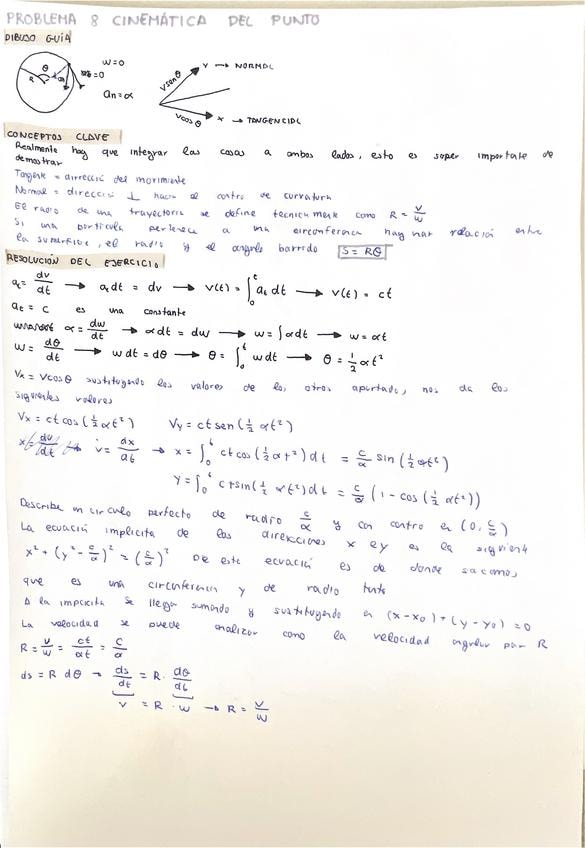 PROBLEMA 8 CINEMÁTICA DEL PUNTO
DIBUJO GUÍA
θ
R
w=0
=0
an=α
v → NORMAL
Vsenθ
Vcosθ
x → TANGENCIAL
CONCEPTOS CLAVE
Realmente hay que integrar las cosas a ambos lados, esto es super importante de
demostrar
Tangente = dirección del movimiento
Normal = dirección ⊥ hacia el centro de curvatura
El radio de una trayectoria se define tecnicamente como R = V/W
Si una partícula pertenece a una circunferencia hay una relación entre
la superficie, el radio y el angulo barrido S = Rθ
RESOLUCIÓN DEL EJERCICIO
at = dv/dt → at dt = dv → v(t) = ∫₀ᵗ at dt → v(t) = ct
at = c es una constante
α = dw/dt → αdt = dw → w = ∫αdt → w = αt
w = dθ/dt → w dt = dθ → θ = ∫₀ᵗ w dt → θ = ½ αt²
Vx = Vcosθ sustituyendo los valores de los otros apartado, nos da los
siguientes valores
Vx = ct cos(½ αt²) Vy = ct sen(½ αt²)
v = dx/dt → x = ∫₀ᵗ ct cos(½ αt²) dt = c/α sin(½ αt²)
Y = ∫₀ᵗ ct sin(½ αt²) dt = c/α (1 - cos(½ αt²))
Describe un circulo perfecto de radio c/α y con centro en (0, c/α)
La ecuación implicita de las direcciones x e y es la siguient
x² + (y² - c/α)² = (c/α)² De esta ecuación es de donde sacamos
que es una circunferencia y de radio
A la implicita se llega sumando y sustituyendo en (x-x₀) + (y-y₀) = 0
La velocidad se puede analizar como la velocidad angular por R
R = V/W = ct/αt = c/α
ds = R dθ → ds/dt = R · dθ/dt
v = R · w → R = V/W